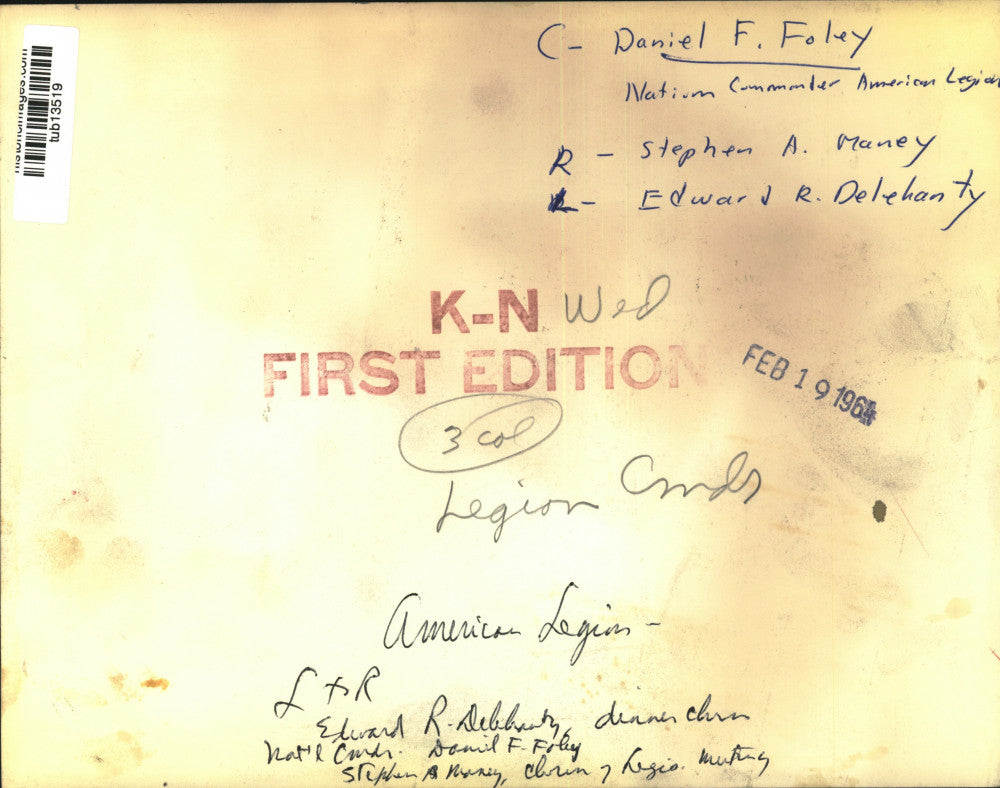 C - Daniel F. Foley
Nation Commander American Legion
R - Stephen A. Maney
L - Edward R. Delehanty
tub13519
K-N Wed
FIRST EDITION
FEB 19 1964
3 col
Legion Cmdr
American Legion -
L to R
Edward R. Delehanty, dinner chrm
Nat'l Cmdr. Daniel F. Foley
Stephen A Maney, chrm of Legio. meeting